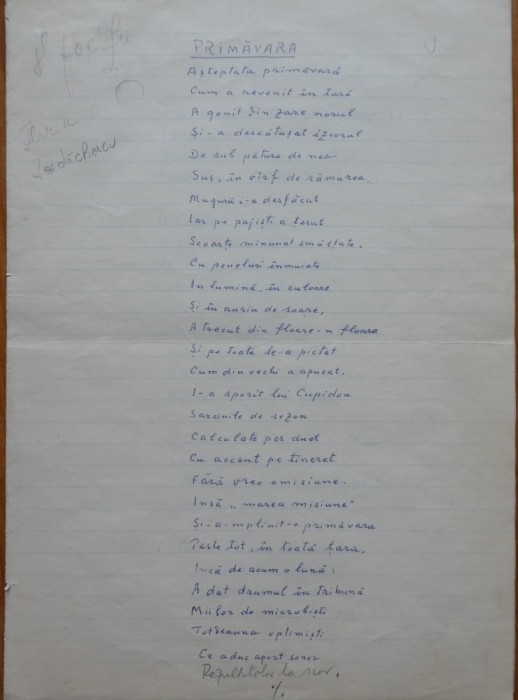 PRIMĂVARA
Așteptata primăvară
Cum a revenit în țară
A gonit din zare norul
Și-a descătușat izvorul
De sub pătura de nea
Sus, în vîrf de rămurea
Mugurii i-a desfăcut
Iar pe pajiști a țesut
Scoarțe minunat smălțate.
Cu peneluri înmuiate
În lumină, în culoare
Și în auriu de soare,
A trecut din floare-n floare
Și pe toate le-a pictat
Cum din vechi a apucat.
I-a sporit lui Cupidon
Sarcinile de sezon
Calculate per duet
Cu accent pe tineret
Fără vreo omisiune.
Însă, „marea misiune"
Și-a-mplinit-o primăvara
Peste tot, în toată țara.
Încă de acum o lună:
A dat drumul în tribună
Miilor de microbiști
Totdeauna optimiști
Ce aduc aport sonor
Rezultatelor la scor.
·/.
Florin